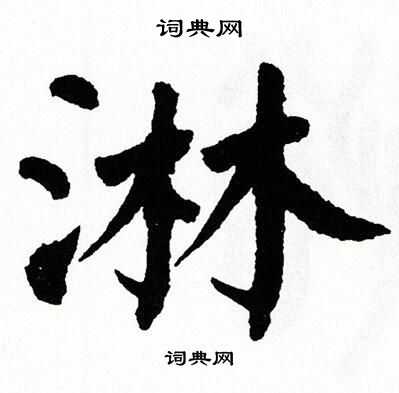 词典网
淋
词典网